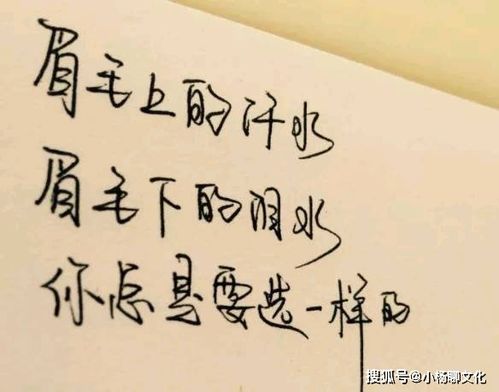 眉毛上的汗水
眉毛下的泪水
你总是要选一样的
搜狐号@小杨聊文化